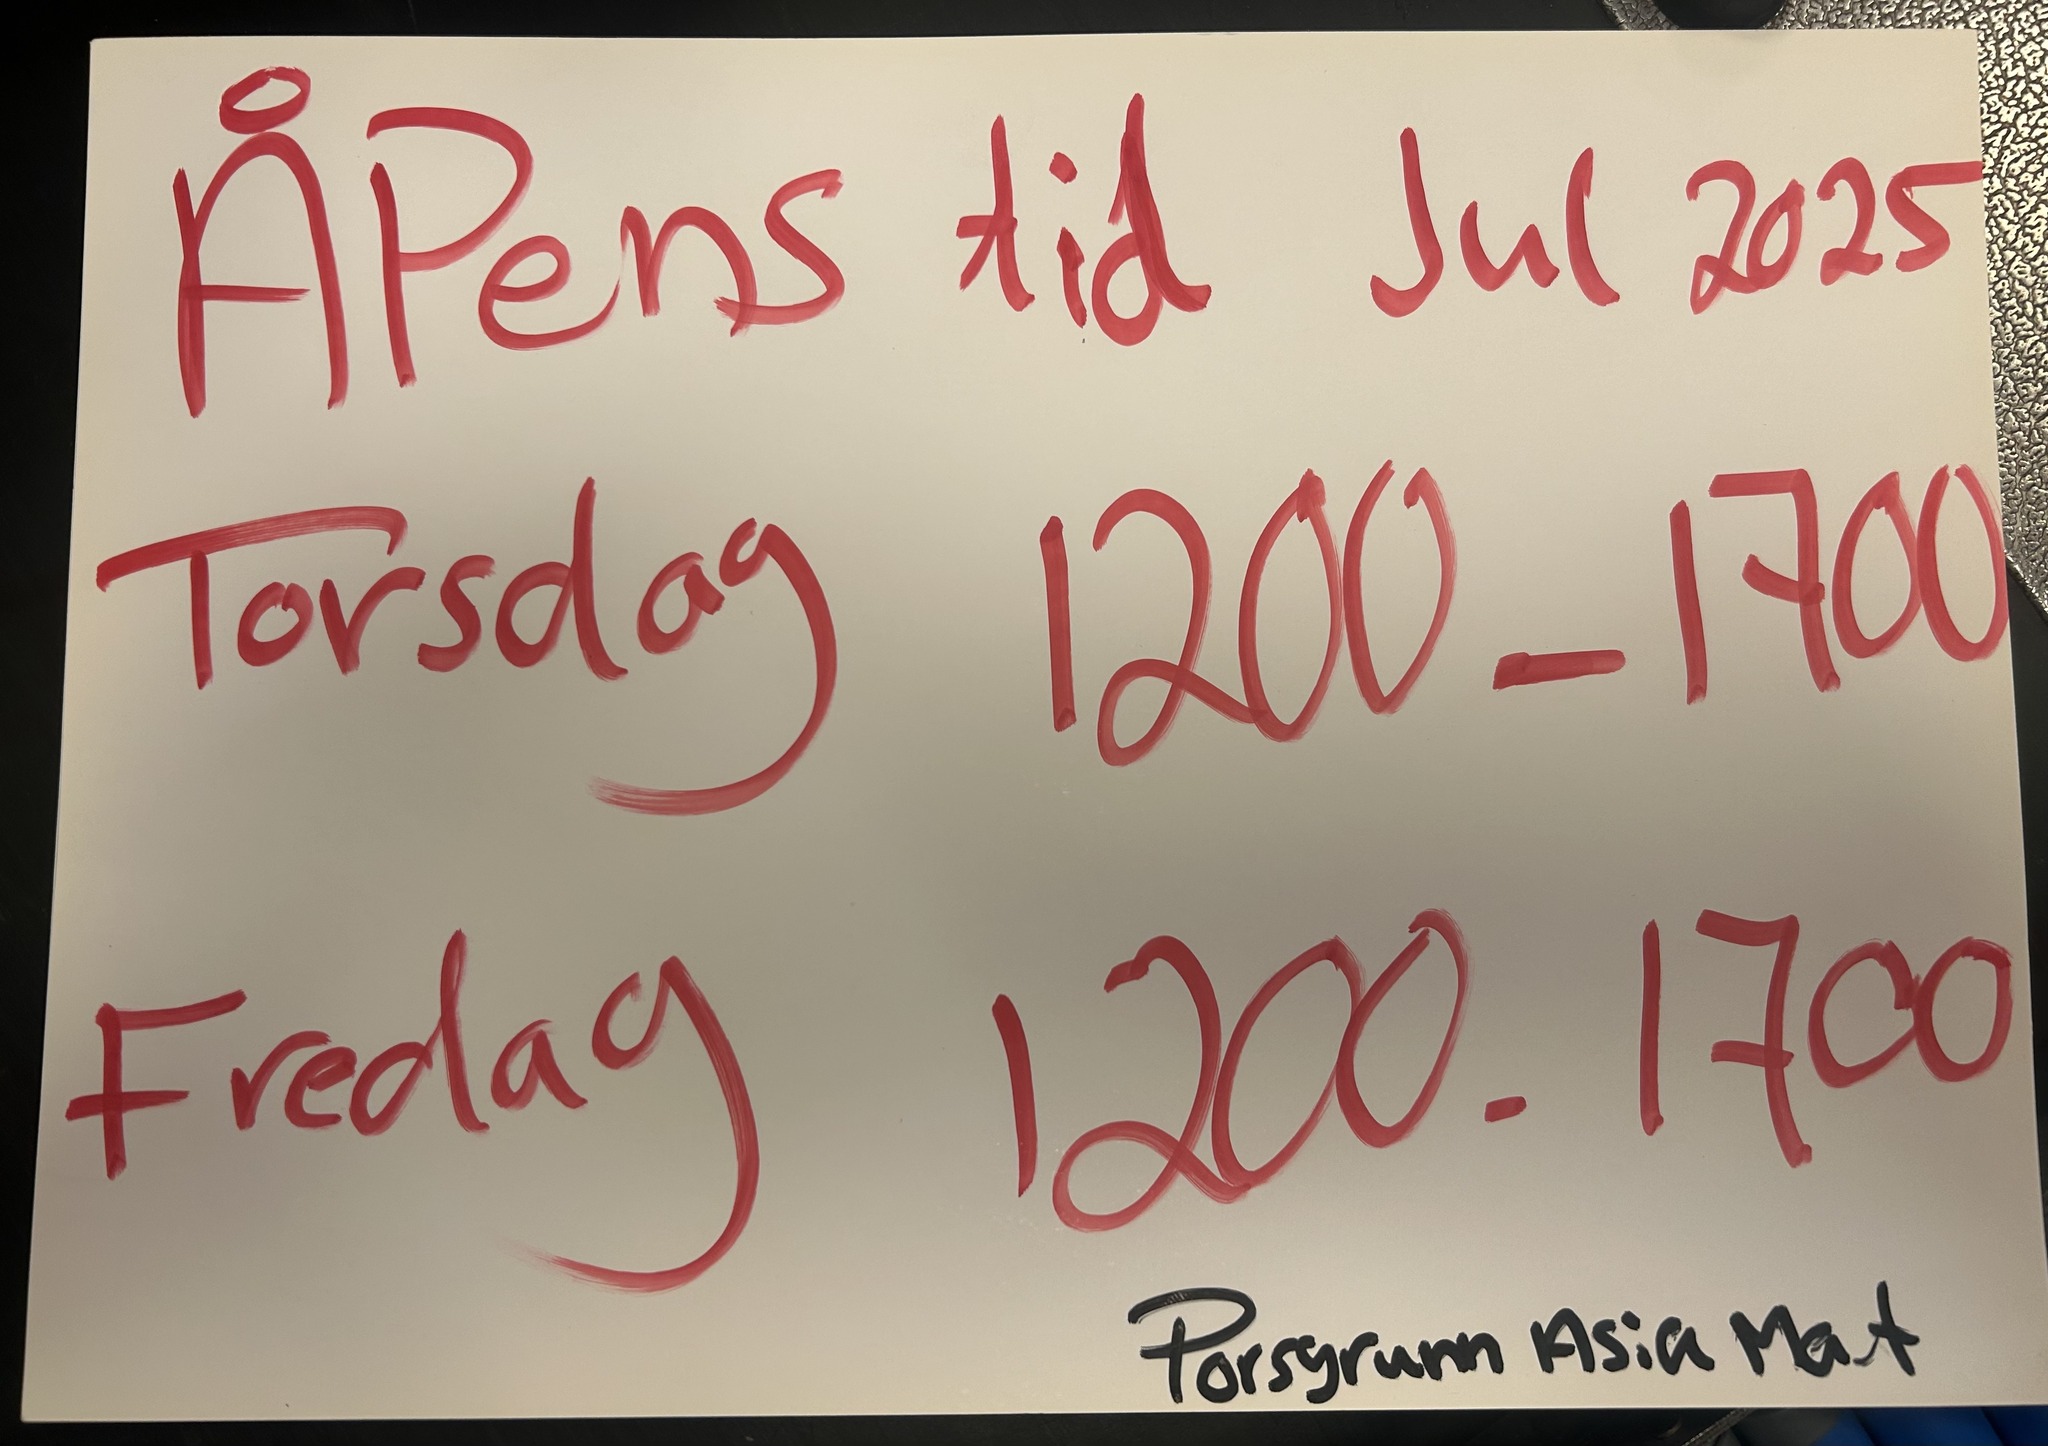 ÅPens tid Jul 2025
Torsdag 1200 - 1700
Fredag 1200 - 1700
Porsgrunn Asia Mat